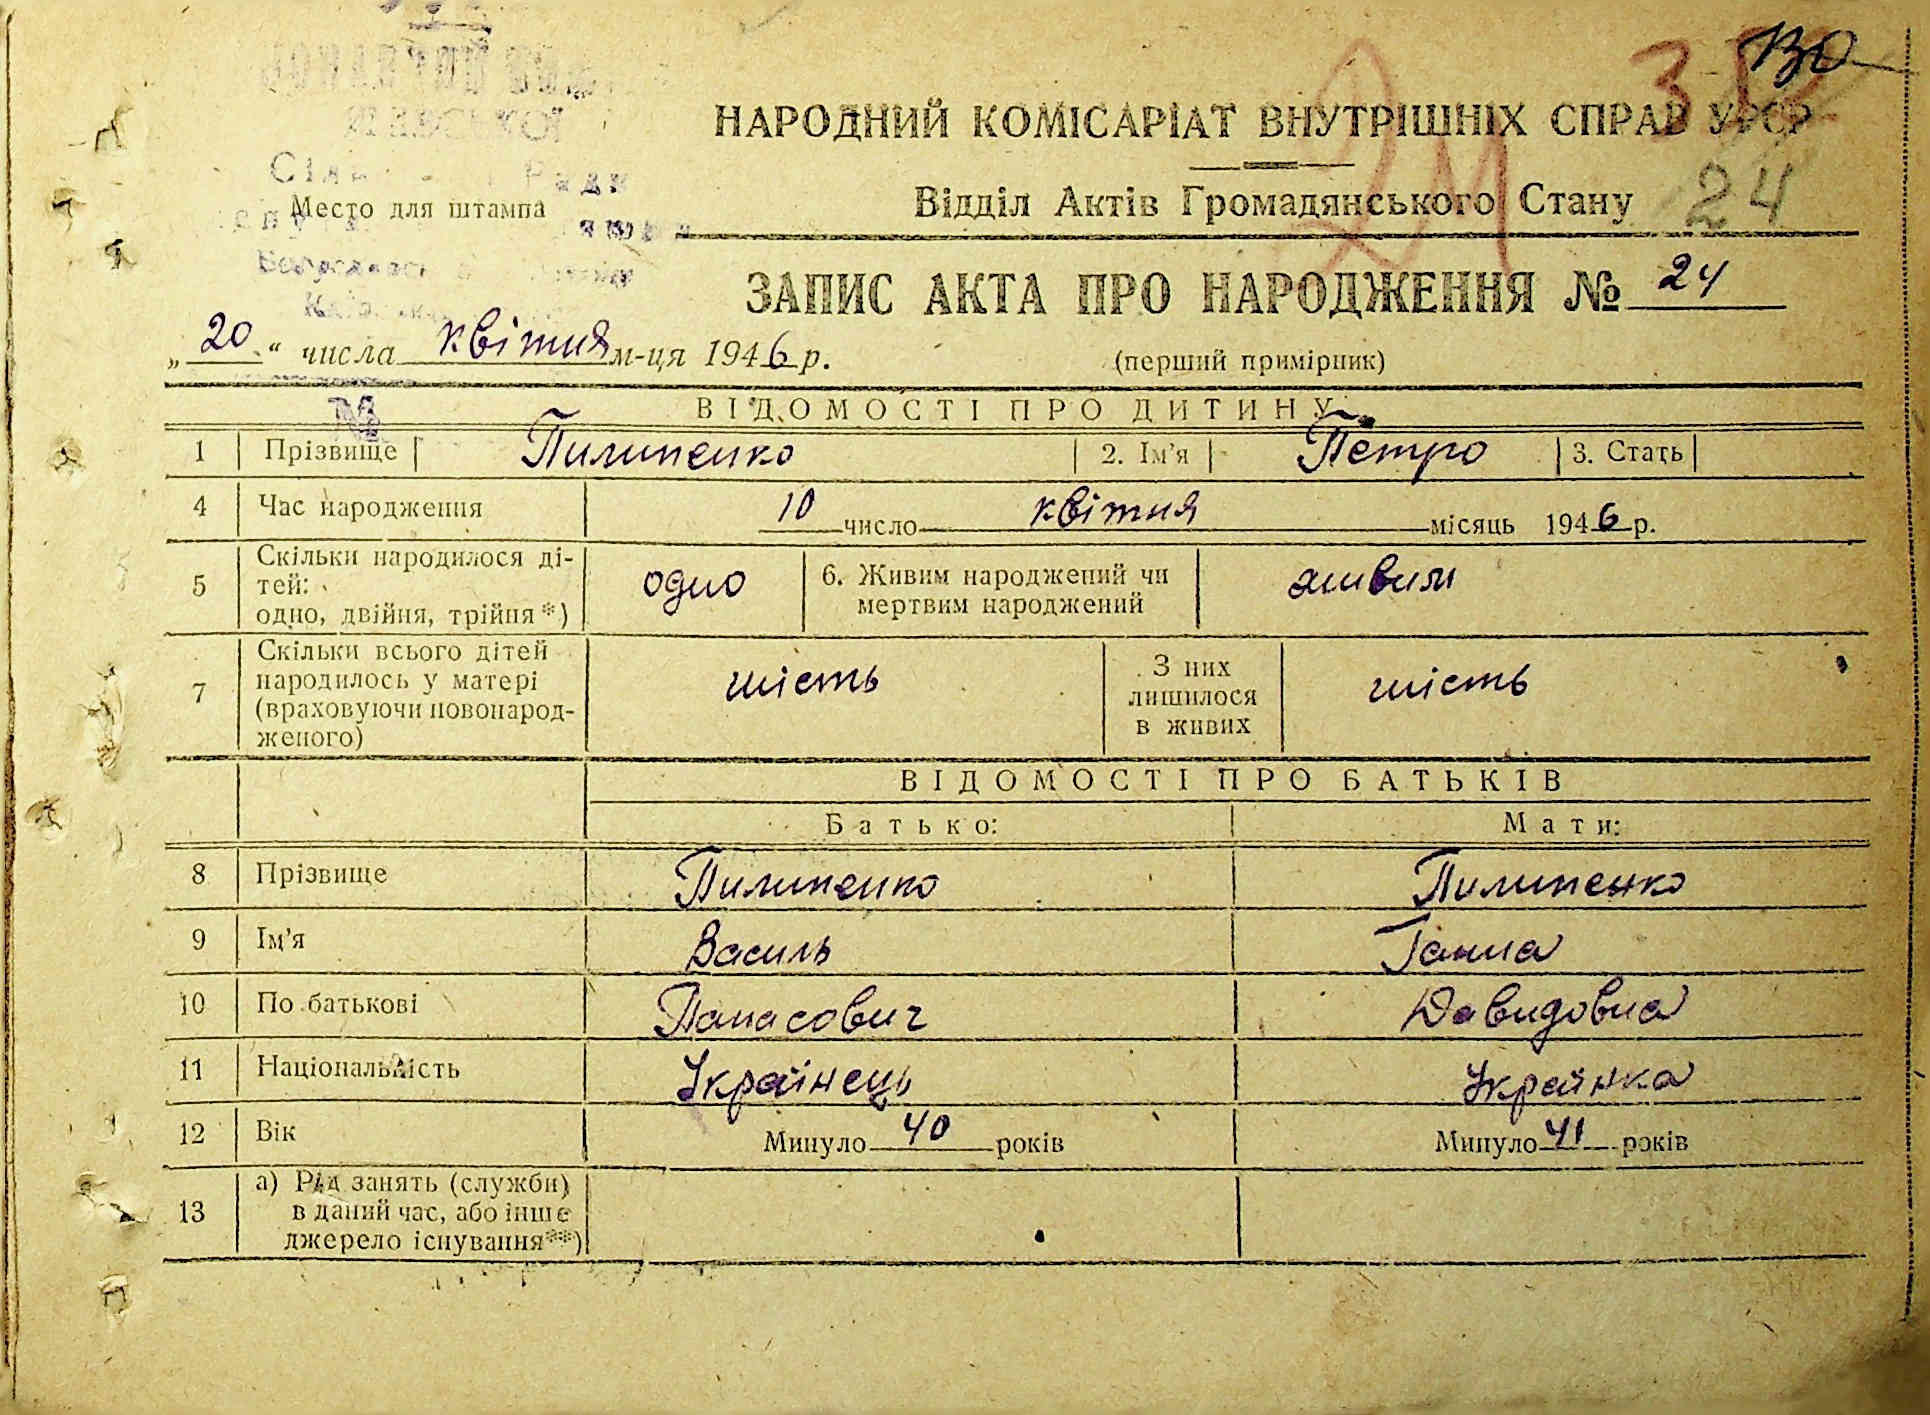 ВО
38
НАРОДНИЙ КОМІСАРІАТ ВНУТРІШНІХ СПРАВ УРСР
24
Відділ Актів Громадянського Стану
Место для штампа
ЗАПИС АКТА ПРО НАРОДЖЕННЯ № 24
„20“ числа квітня м-ця 1946 р.
(перший примірник)
ВІДОМОСТІ ПРО ДИТИНУ
1 Прізвище Пилипенко 2. Ім'я Петро 3. Стать
4 Час народження 10 число квітня місяць 1946 р.
5 Скільки народилося ді-
тей:
одно, двійня, трійня*) одно 6. Живим народжений чи
мертвим народжений живим
7 Скільки всього дітей
народилось у матері
(враховуючи новонарод-
женого) шість З них
лишилося
в живих шість
ВІДОМОСТІ ПРО БАТЬКІВ
Батько: Мати:
8 Прізвище Пилипенко Пилипенко
9 Ім'я Василь Ганна
10 По батькові Панасович Давидовна
11 Національність Українець Українка
12 Вік Минуло 40 років Минуло 41 років
13 а) Рід занять (служби)
в даний час, або інше
джерело існування**)